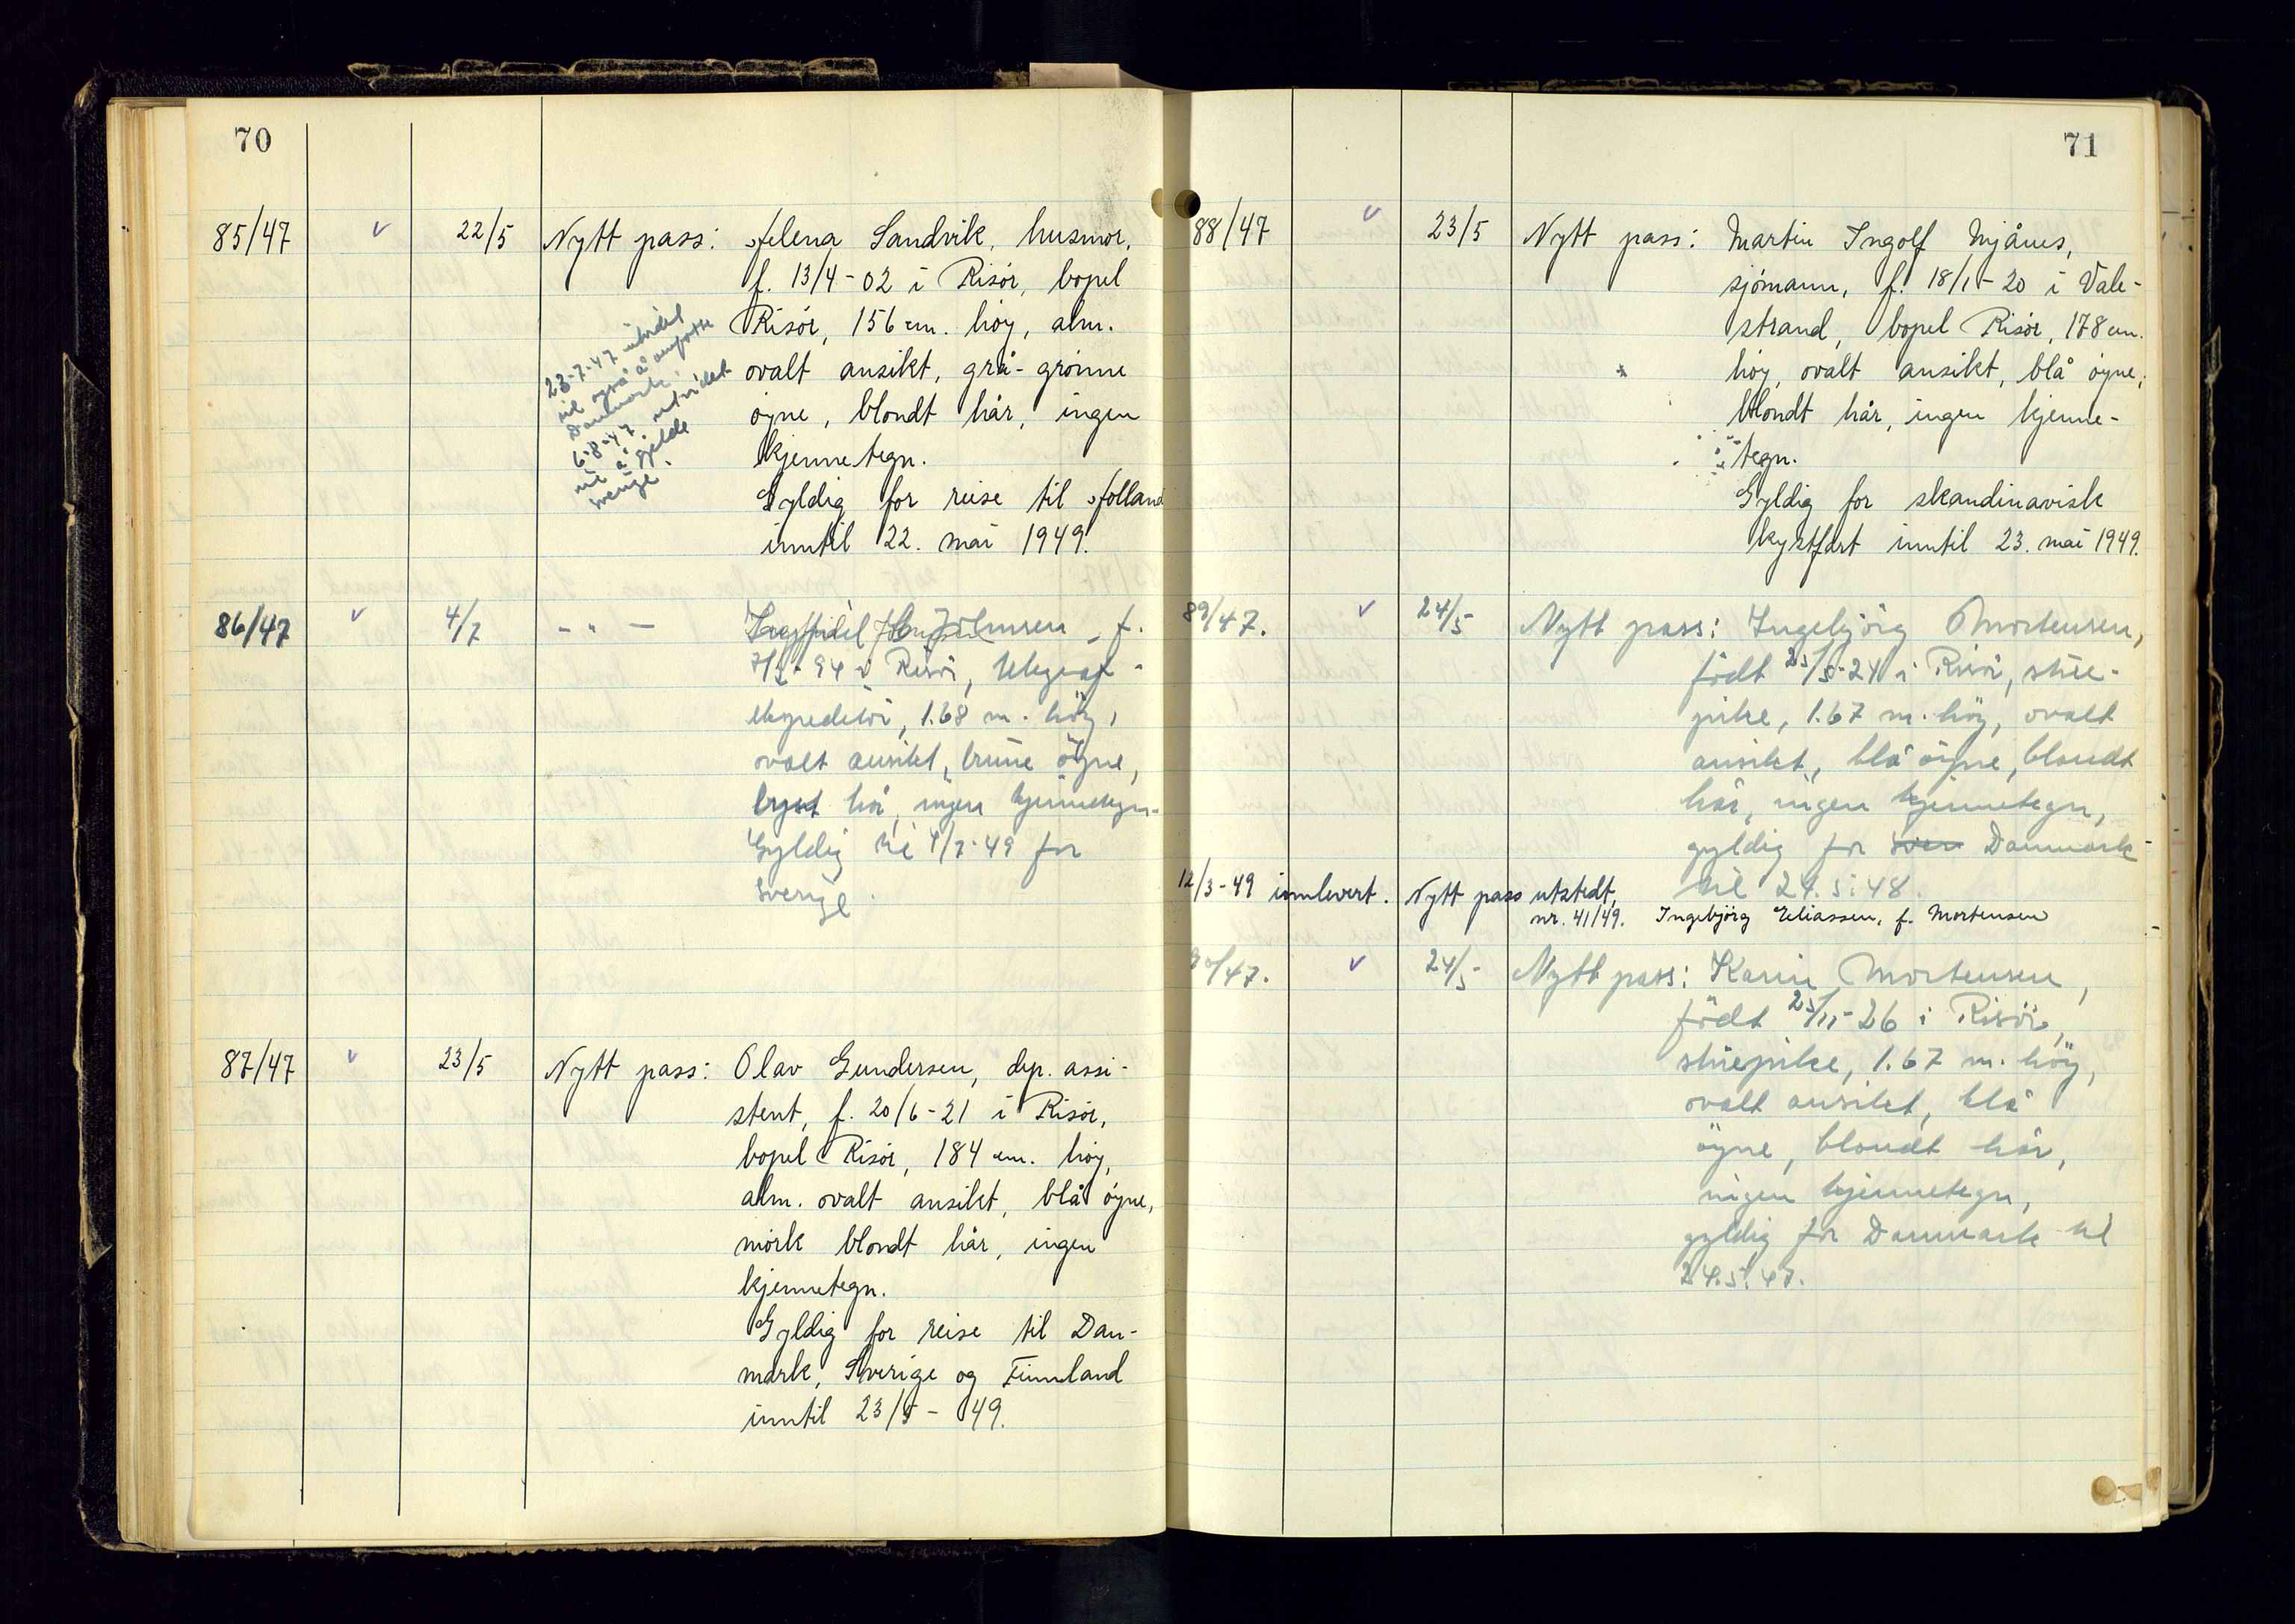 70
85/47 v 22/5 Nytt pass: Helena Sandvik, husmor,
f. 13/4-02 i Risör, bopel
Risör, 156 cm. höy, alm.
ovalt ansikt, grå-grönne
öyne, blondt hår, ingen
kjennetegn.
Gyldig for reise til Holland
inntil 22. mai 1949.
23-7-47 utvidet
til også å omfatte
Danmark.
6-8-47 utvidet
til å gjelde
Sverige.
86/47 v 4/7 - " - Johnsen, f.
-94 i Risör, telegraf-
ekspeditör, 1.68 m. höy,
ovalt ansikt, brune öyne,
lyst hår, ingen kjennetegn.
Gyldig til 4/7-49 for
Sverige.
87/47 v 23/5 Nytt pass: Olav Gundersen, dep. assi-
stent, f. 20/6-21 i Risör,
bopel Risör, 184 cm. höy,
alm. ovalt ansikt, blå öyne,
mörk blondt hår, ingen
kjennetegn.
Gyldig for reise til Dan-
mark, Sverige og Finnland
inntil 23/5-49.
71
88/47 v 23/5 Nytt pass: Martin Ingolf Mjånes,
sjömann, f. 18/1-20 i Vale-
strand, bopel Risör, 178 cm.
höy, ovalt ansikt, blå öyne,
blondt hår, ingen kjenne-
tegn.
Gyldig for skandinavisk
kystfart inntil 23. mai 1949.
89/47. v 24/5 Nytt pass: Ingebjörg Mortensen,
födt 25/5-24 i Risör, stue-
pike, 1.67 m. höy, ovalt
ansikt, blå öyne, blondt
hår, ingen kjennetegn,
gyldig for Danmark
til 24.5.48.
12/3-49 innlevert. Nytt pass utstedt,
nr. 41/49. Ingebjörg Eliassen, f. Mortensen
90/47. v 24/5 Nytt pass: Karin Mortensen,
födt 25/11-26 i Risör,
stuepike, 1.67 m. höy,
ovalt ansikt, blå
öyne, blondt hår,
ingen kjennetegn,
gyldig for Danmark til
24.5.47.